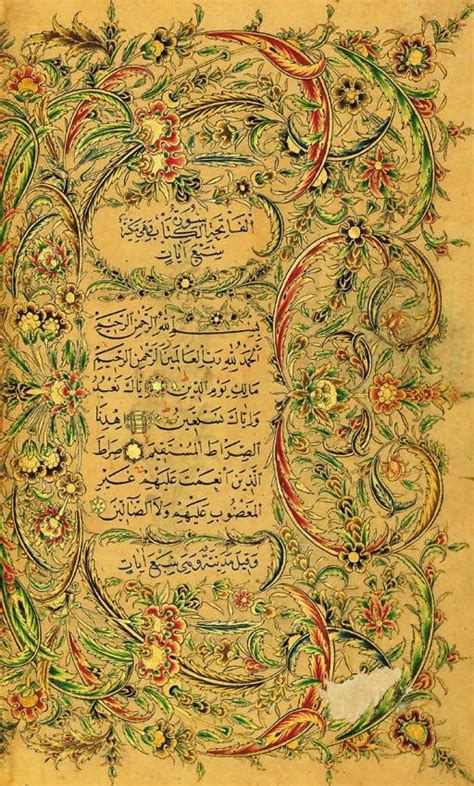 سورة فاتحة الكتاب وهي مكية
سبع ايات
بسم الله الرحمن الرحيم
الحمد لله رب العالمين الرحمن الرحيم
مالك يوم الدين اياك نعبد
واياك نستعين اهدنا
الصراط المستقيم صراط
الذين انعمت عليهم غير
المغضوب عليهم ولا الضالين
وقيل مدنية وهي سبع ايات